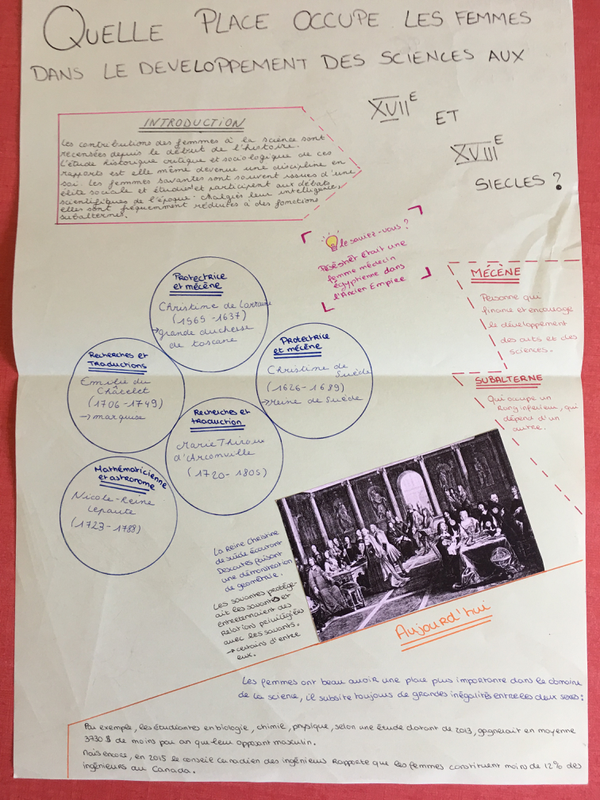 QUELLE PLACE OCCUPE LES FEMMES
DANS LE DEVELOPPEMENT DES SCIENCES AUX
XVIIE ET
XVIIIE
SIECLES ?
INTRODUCTION
Les contributions des femmes à la science sont
recensées depuis le début de l'histoire.
L'étude historique critique et sociologique de ces
rapports est elle même devenue une discipline en
soi. Les femmes savantes sont souvent issues d'une
élite sociale et étudient et participent aux débats
scientifiques de l'époque. Malgré leur intelligence,
elles sont fréquemment réduites à des fonctions
subalternes.
Le saviez-vous ?
Peseshet était une
femme médecin
égyptienne dans
l'Ancien Empire
MÉCÈNE
Personne qui
finance et encourage
le développement
des arts et des
sciences.
SUBALTERNE
Qui occupe un
Rang inférieur, qui
dépend d'un
autre.
Protectrice
et mécène
Christine de Lorraine
(1565-1637)
→ grande duchesse
de toscane
Protectrice
et mécène
Christine de
Suède
(1626-1689)
→ reine de Suède
Recherches et
Traductions
Emilie du
Châtelet
(1706-1749)
→ marquise
Recherches et
traduction
Marie Thiroux
d'Arconville
(1720-1805)
Mathématicienne
et astronome
Nicole-Reine
Lepaute
(1723-1788)
La reine Christine
de Suède écoutant
Descartes faisant
une démonstration
de géométrie.
Les savantes protége-
ait les savants et
entretenaient des
Relation privilégiées
avec les savants.
→ certains d'entre
eux.
Aujourd'hui
Les femmes ont beau avoir une place plus importante dans le domaine
de la science, il subsite toujours de grandes inégalités entre les deux sexes:
Par exemple, les étudiantes en biologie, chimie, physique, selon une étude datant de 2013, gagnerait en moyenne
3730 $ de moins par an que leur opposant masculin.
Mais encore, en 2015 le conseil Canadien des ingénieurs Rapporte que les femmes constituent moins de 12% des
ingénieurs au Canada.